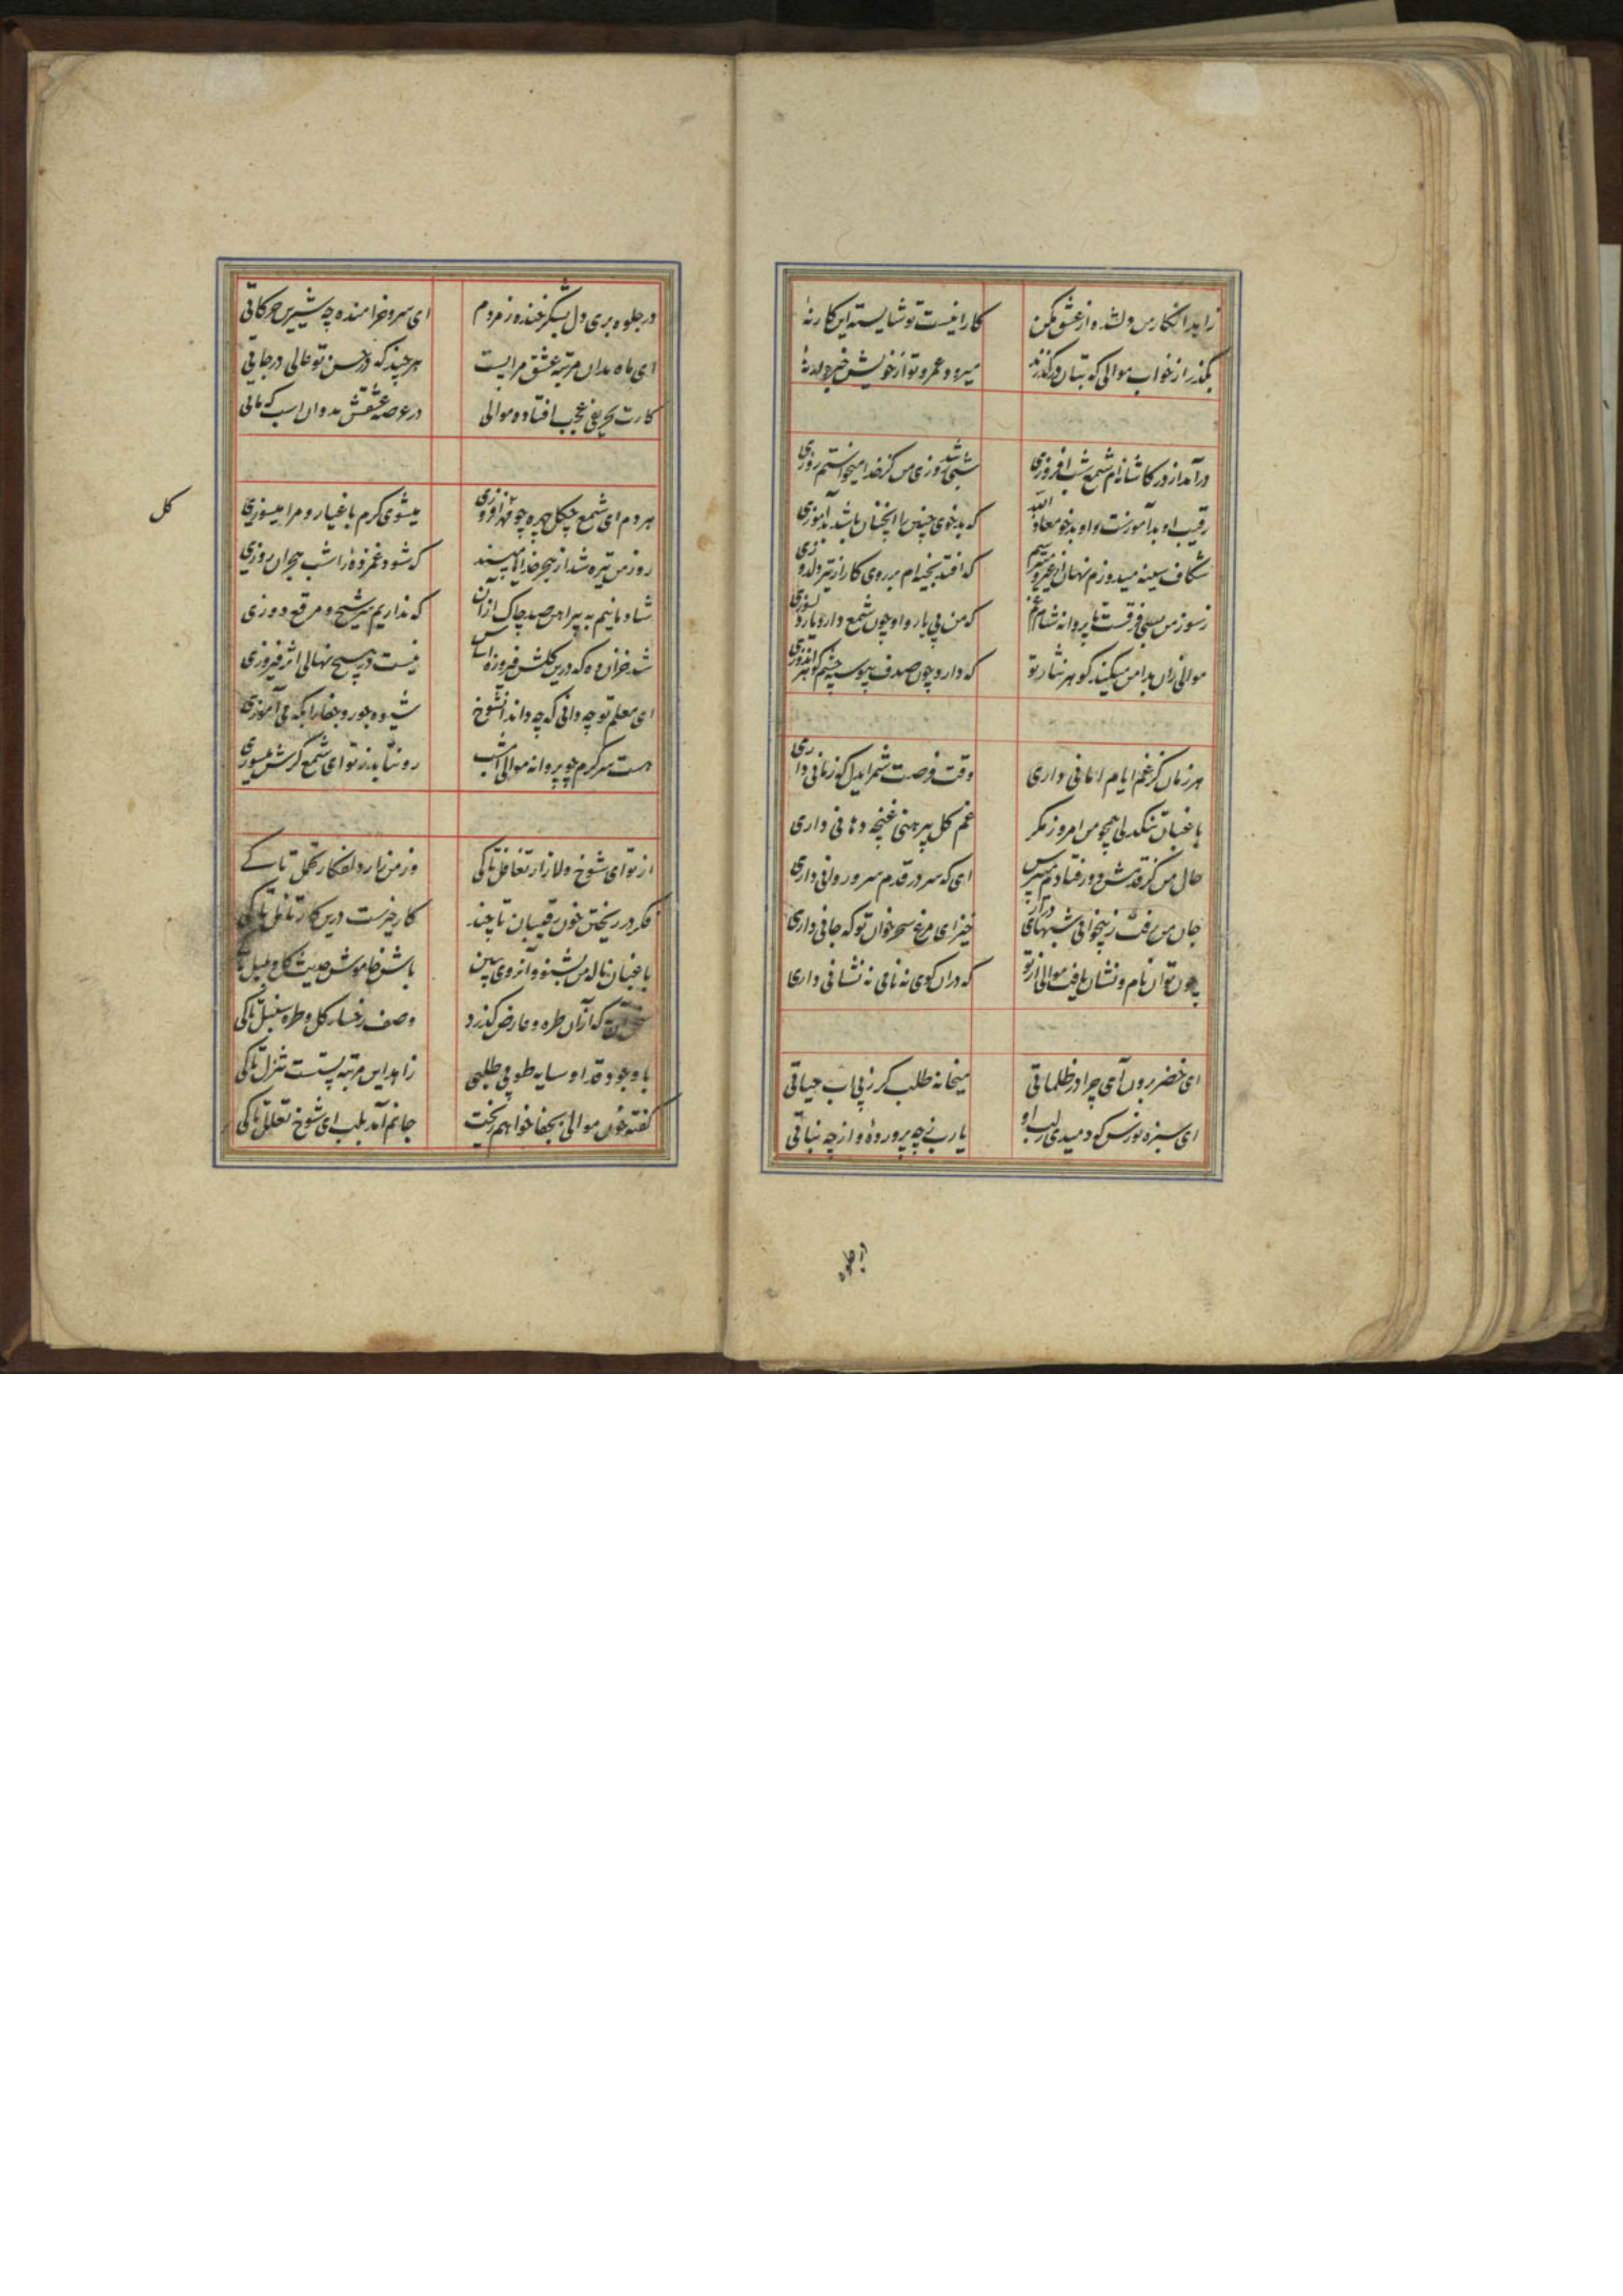 زاهد انکار من دلشده از عشق مکن کار این نیست تو شایسته این کار نهٔ
بگذر از خواب موالی که بتان درگذرند میرود عمر و تو از خویش خبردار نهٔ
درآمد از در کاشانه‌ام شمع شب افروزی شبی شد روزی من کز خدا میخواستم روزی
رقیب او بدآموزست و او بدخو معاذ الله که بدخوی چنین را آنچنان باشد بدآموزی
شکاف سینه میدوزم نهان از غیر و میترسم که افتد بخیه‌ام بر روی کار از تیر دلدوزی
ز سوز من بسی فرقست تا پروانه شام غم که من بی یار و او چون شمع دارد یار دلسوزی
موالی زان بدامن میکند گوهر نثار تو که دارد چون صدف پیوسته چشم گوهر اندوزی
هر زمان کز غم ایام امانی داری وقت فرصت شمر ایدل که زمانی داری
باغبان تنگدلی همچو من امروز مگر غم گل پیرهنی غنچه دهانی داری
حال من کز قدمش دور فتادم مپرس ای که سر در قدم سرو روانی داری
جان من رفت ز بیخوابی شبهای دراز خیز ای مرغ سحر خوان تو که جانی داری
چون توان نام و نشان یافت موالی از تو که در آن کوی نه نامی نه نشانی داری
ای خضر برون آی چرا در ظلماتی میخانه طلب کن گر ز پی آب حیاتی
ای سبزه نورس که دمیدی ز لب او یارب ز چه پرورده و از چه نباتی
در جلوه
در جلوه بری دل بشکر خنده ز مردم ای سرو خرامنده چه شیرین حرکاتی
ای ماه بدان مرتبه عشق مرا هست هر چند که در حسن تو عالی درجاتی
کارت بحریفی عجب افتاده موالی در عرصه عشقش مدوان اسب که ماتی
هر دم ای شمع چگل چهره چو می افروزی میشوی گرم باغیار و مرا میسوزی
گل
روز من تیره شد از هجر خدایا مپسند که شود غمزده‌ای را شب هجران روزی
شادمانیم به پیراهن صد چاک از آن که نداریم سر شیخ و مرقع دوزی
شد خزان وه که درین گلشن فیروزه اساس نیست در هیچ نهالی اثر فیروزی
ای معلم تو چه دانی که چه داند آن شوخ شیوه جور و جفا را بکه می آموزی
هست سرگرم چو پروانه موالی امشب رو نتابد ز تو ای شمع گرش میسوزی
از تو ای شوخ دلازار تغافل تا کی وز من زار دلفکار تحمل تا کے
فکر در ریختن خون رقیبان تا چند کار خیرست درین کار تامل تا کی
باغبان ناله من بشنو و آن روی ببین باش خاموش حدیث گل و بلبل تا کی
که از آن طره و عارض گذرد وصف رخسار گل و طره سنبل تا کی
با وجود قد او سایه طوبی طلبی زاهد این مرتبه پستست تنزل تا کی
گفته خون موالی بجفا خواهم ریخت جانم آمد بلب ای شوخ تعلل تا کی